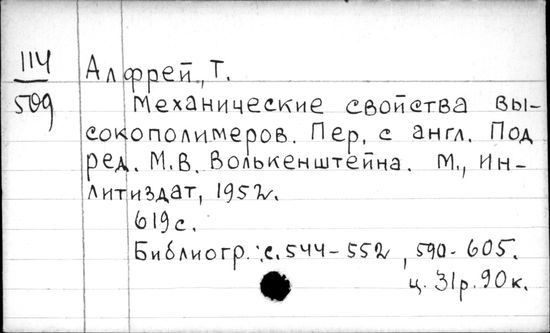 114
509
Алфрей, Т.
Механические свойства вы-
сокополимеров. Пер. с англ. Под
ред. М.В. Волькенштейна. М., Ин-
литиздат, 1952.
619с.
Библиогр.: с. 544-552, 590-605.
ц. 31р. 90к.